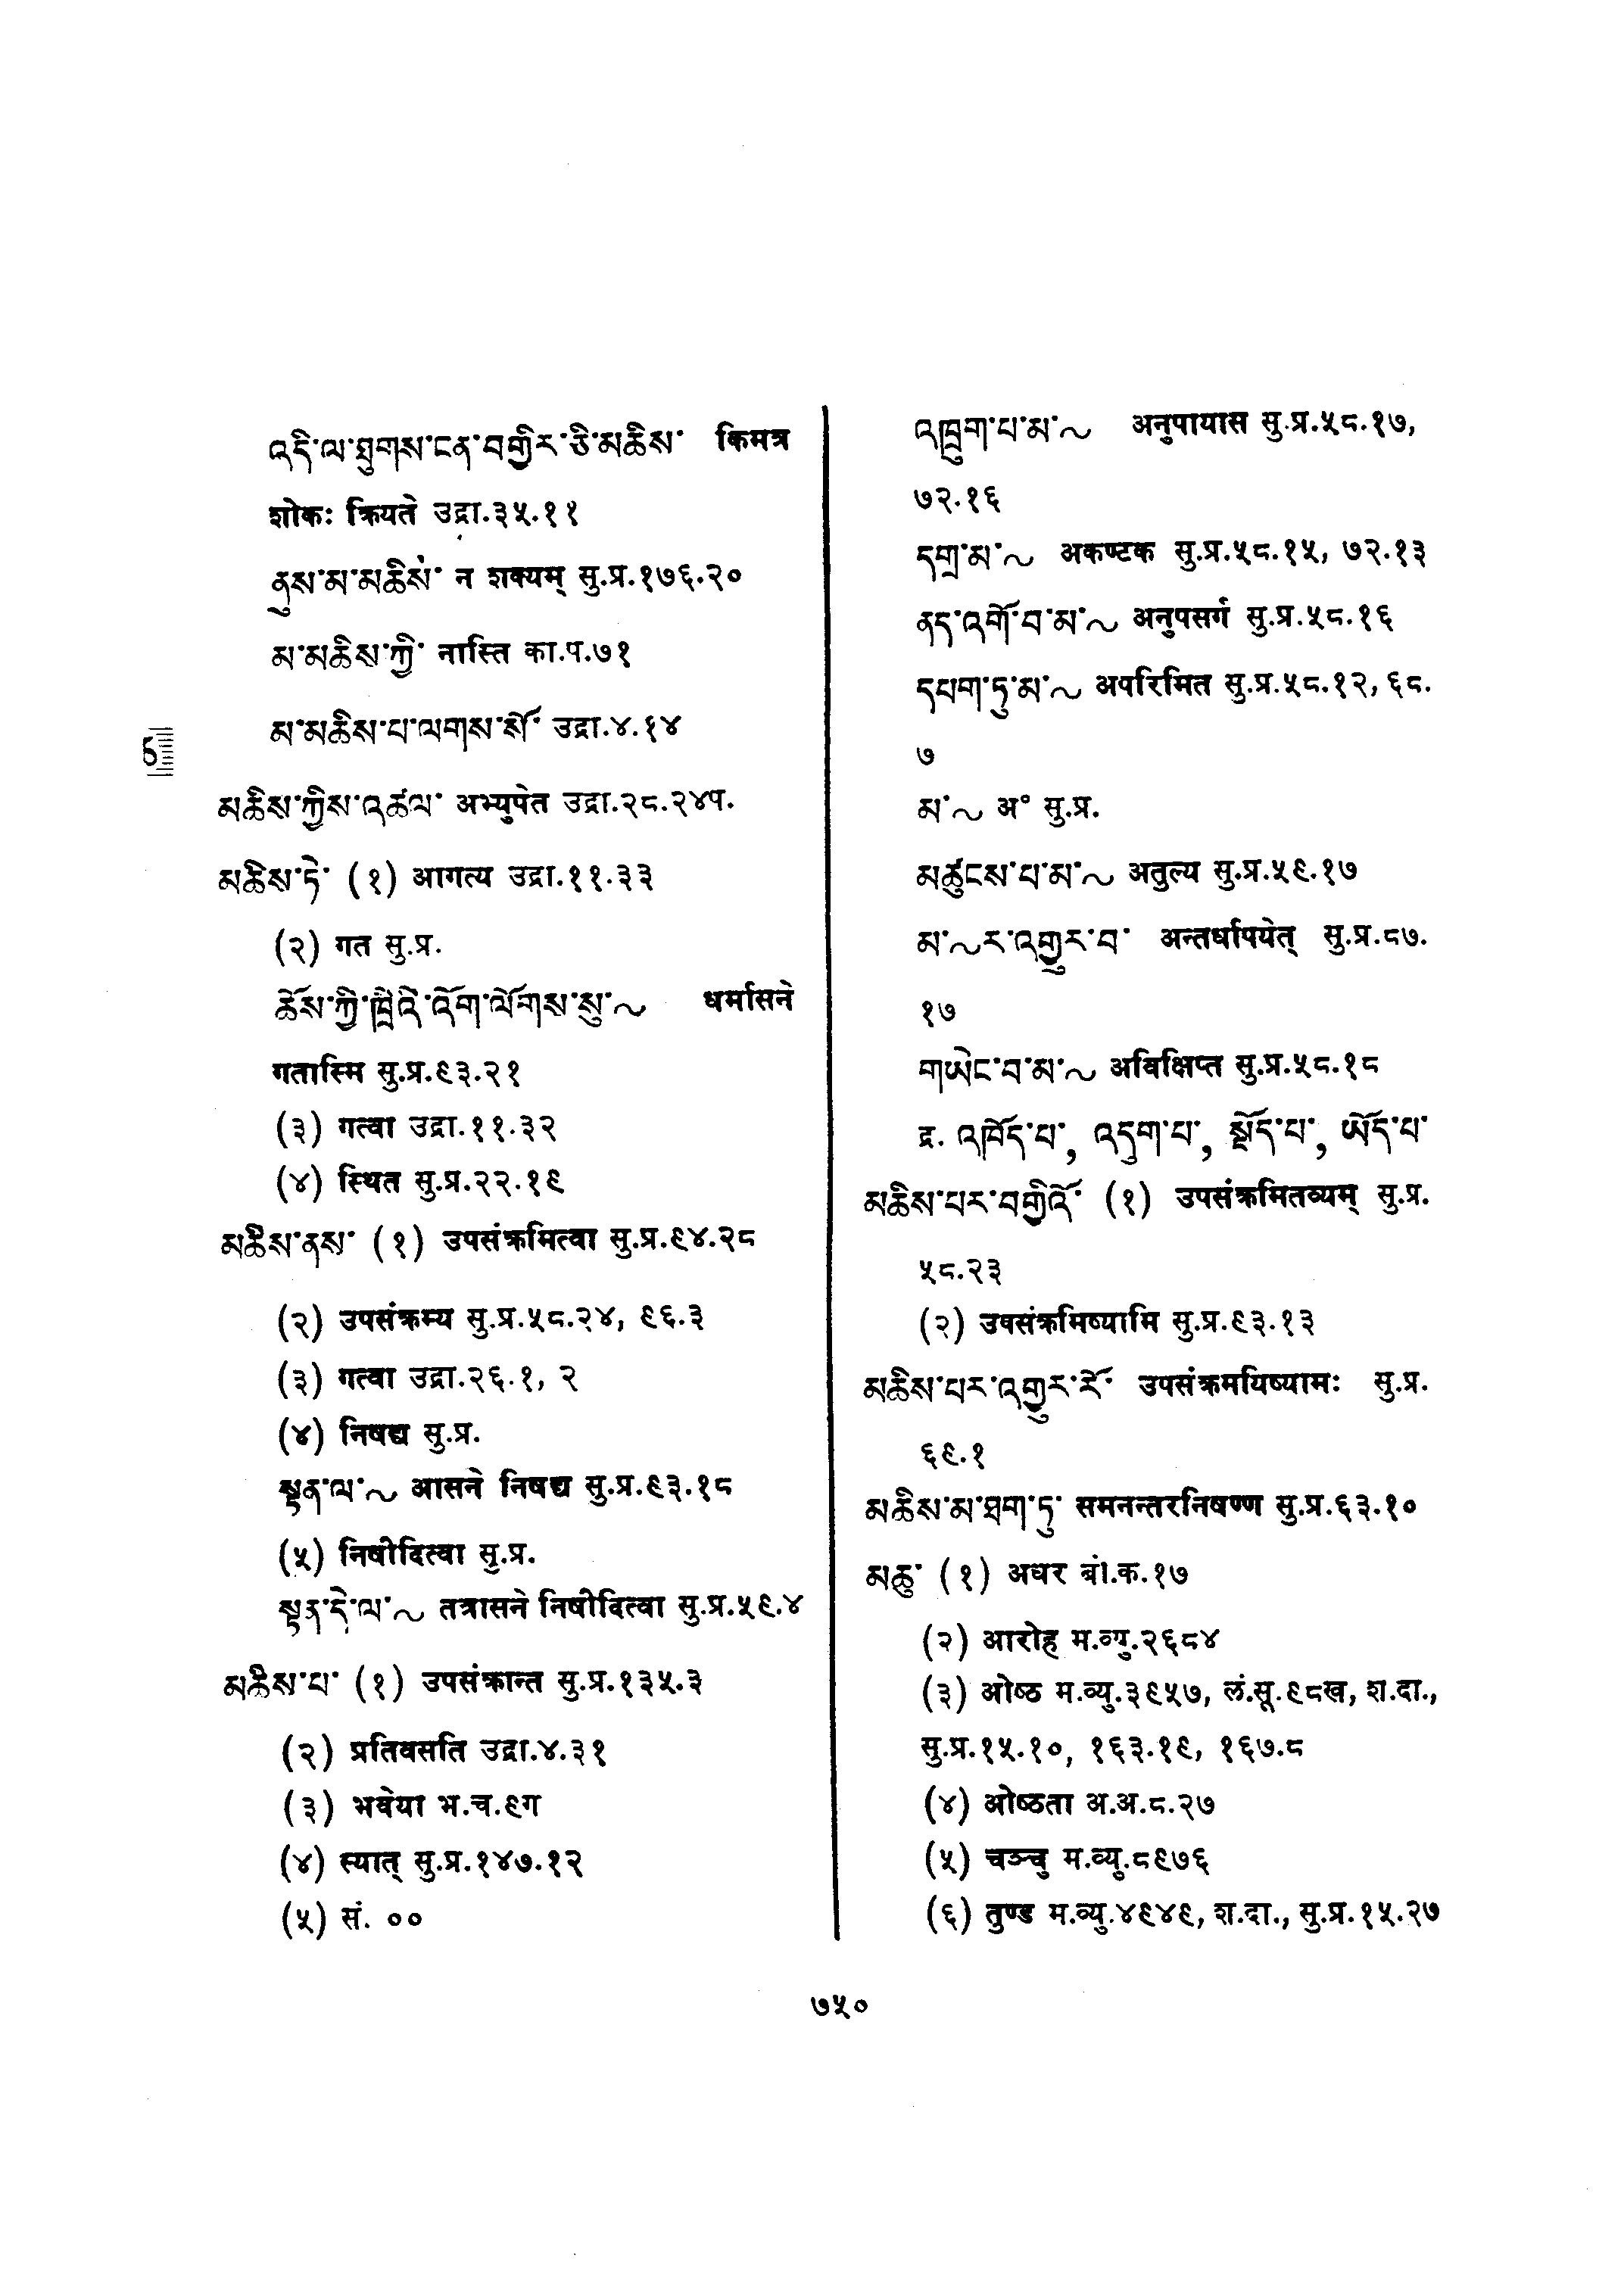 འདི་ལ་ཐུགས་ངན་བགྱིར་ཅི་མཆིས་ किमत्र
शोकः क्रियते उद्रा.३५.११
ནུས་མ་མཆིས་ न शक्यम् सु.प्र.१७६.२०
མ་མཆིས་ཀྱི་ नास्ति का.प.७१
མ་མཆིས་པ་ལགས་སོ་ उद्रा.४.१४
མཆིས་ཀྱིས་འཚལ་ अभ्युपेत उद्रा.२८.२४प.
མཆིས་ཏེ་ (१) आगत्य उद्रा.११.३३
(२) गत सु.प्र.
ཆོས་ཀྱི་ཁྲིའི་འོག་ལོགས་སུ་~ धर्मासने
गतास्मि सु.प्र.९३.२१
(३) गत्वा उद्रा.११.३२
(४) स्थित सु.प्र.२२.१९
མཆིས་ནས་ (१) उपसंक्रमित्वा सु.प्र.९४.२८
(२) उपसंक्रम्य सु.प्र.५८.२४, ९६.३
(३) गत्वा उद्रा.२६.१, २
(४) निषद्य सु.प्र.
སྟན་ལ་~ आसने निषद्य सु.प्र.९३.१८
(५) निषीदित्वा सु.प्र.
སྟན་དེ་ལ་~ तत्रासने निषीदित्वा सु.प्र.५९.४
མཆིས་པ་ (१) उपसंक्रान्त सु.प्र.१३५.३
(२) प्रतिवसति उद्रा.४.३१
(३) भवेया भ.च.९ग
(४) स्यात् सु.प्र.१४७.१२
(५) सं. ००
འཁྲུག་པ་མ་~ अनुपायास सु.प्र.५८.१७,
७२.१६
དགྲ་མ་~ अकण्टक सु.प्र.५८.१५, ७२.१३
ནད་འགོ་བ་མ་~ अनुपसर्ग सु.प्र.५८.१६
དཔག་ཏུ་མ་~ अपरिमित सु.प्र.५८.१२, ६८.
७
མ་~ अ° सु.प्र.
མཚུངས་པ་མ་~ अतुल्य सु.प्र.५९.१७
མ་~ར་འགྱུར་བ་ अन्तर्धापयेत् सु.प्र.८७.
१७
གཡེང་བ་མ་~ अविक्षिप्त सु.प्र.५८.१८
द्र. འཁོད་པ་, འདུག་པ་, སྡོད་པ་, ཡོད་པ་
མཆིས་པར་བགྱིའོ་ (१) उपसंक्रमितव्यम् सु.प्र.
५८.२३
(२) उपसंक्रमिष्यामि सु.प्र.९३.१३
མཆིས་པར་འགྱུར་རོ་ उपसंक्रमयिष्यामः सु.प्र.
६९.१
མཆིས་མ་ཐག་ཏུ་ समनन्तरनिषण्ण सु.प्र.६३.१०
མཆུ་ (१) अधर बो.क.१७
(२) आरोह म.व्यु.२६८४
(३) ओष्ठ म.व्यु.३९५७, लं.सू.९८ख, श.दा.,
सु.प्र.१५.१०, १६३.१९, १६७.८
(४) ओष्ठता अ.अ.८.२७
(५) चञ्चु म.व्यु.८९७६
(६) तुण्ड म.व्यु.४९४९, श.दा., सु.प्र.१५.२७
७५०